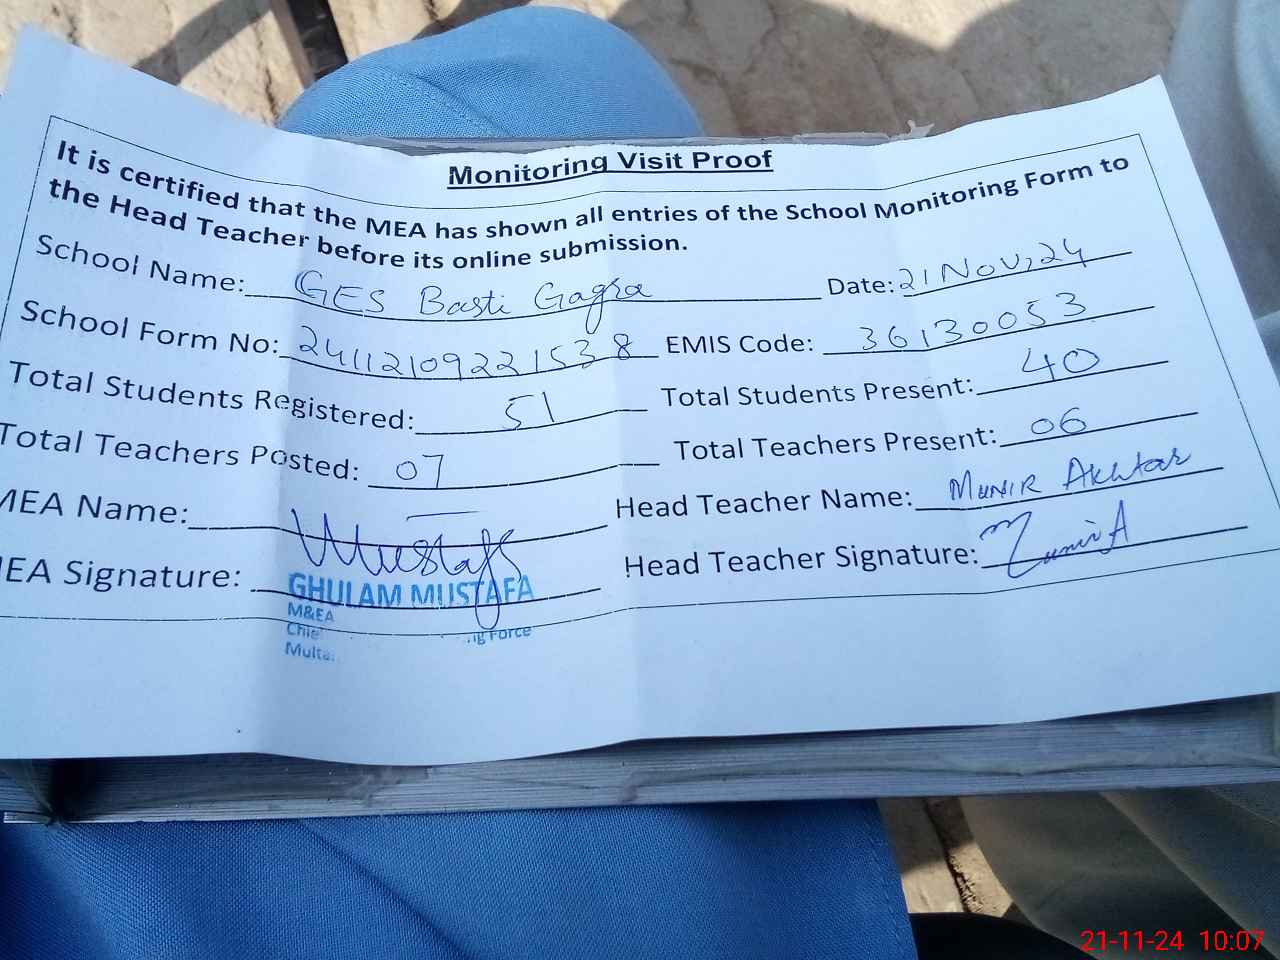 Monitoring Visit Proof
It is certified that the MEA has shown all entries of the School Monitoring Form to
the Head Teacher before its online submission.
School Name: GES Basti Gagra Date: 21 Nov, 24
School Form No: 24112109221538 EMIS Code: 36130053
Total Students Registered: 51 Total Students Present: 40
Total Teachers Posted: 07 Total Teachers Present: 06
MEA Name: Head Teacher Name: Munir Akhtar
MEA Signature: Mustafa Head Teacher Signature: Munir A
GHULAM MUSTAFA
M&EA
Chie ng Force
Multa
21-11-24 10:07